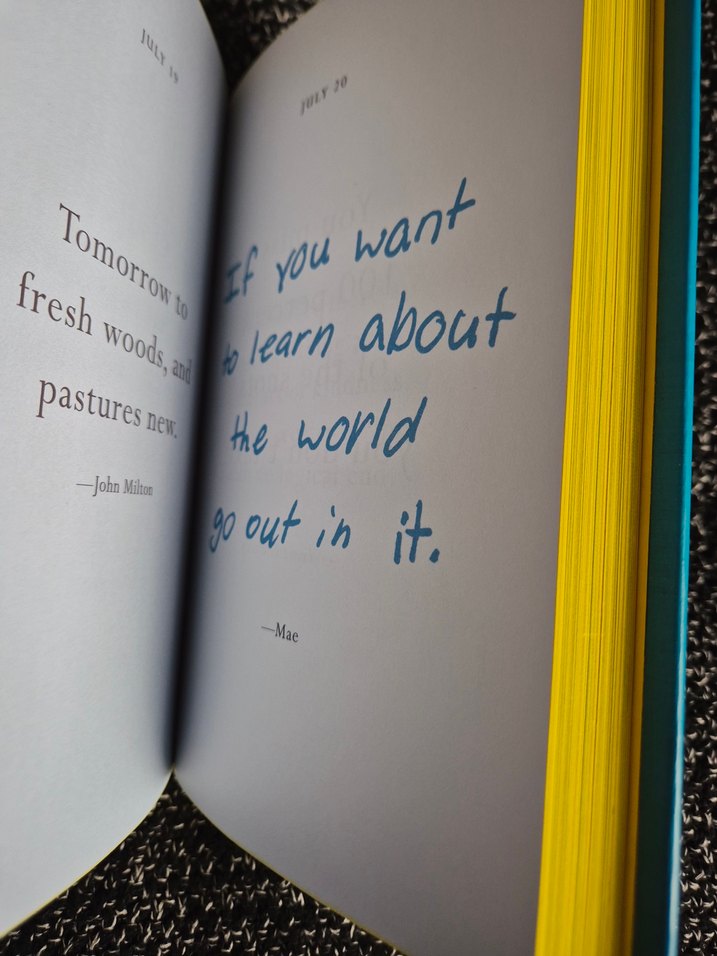 JULY 19
Tomorrow to
fresh woods, and
pastures new.
—John Milton
JULY 20
If you want
to learn about
the world
go out in it.
—Mae